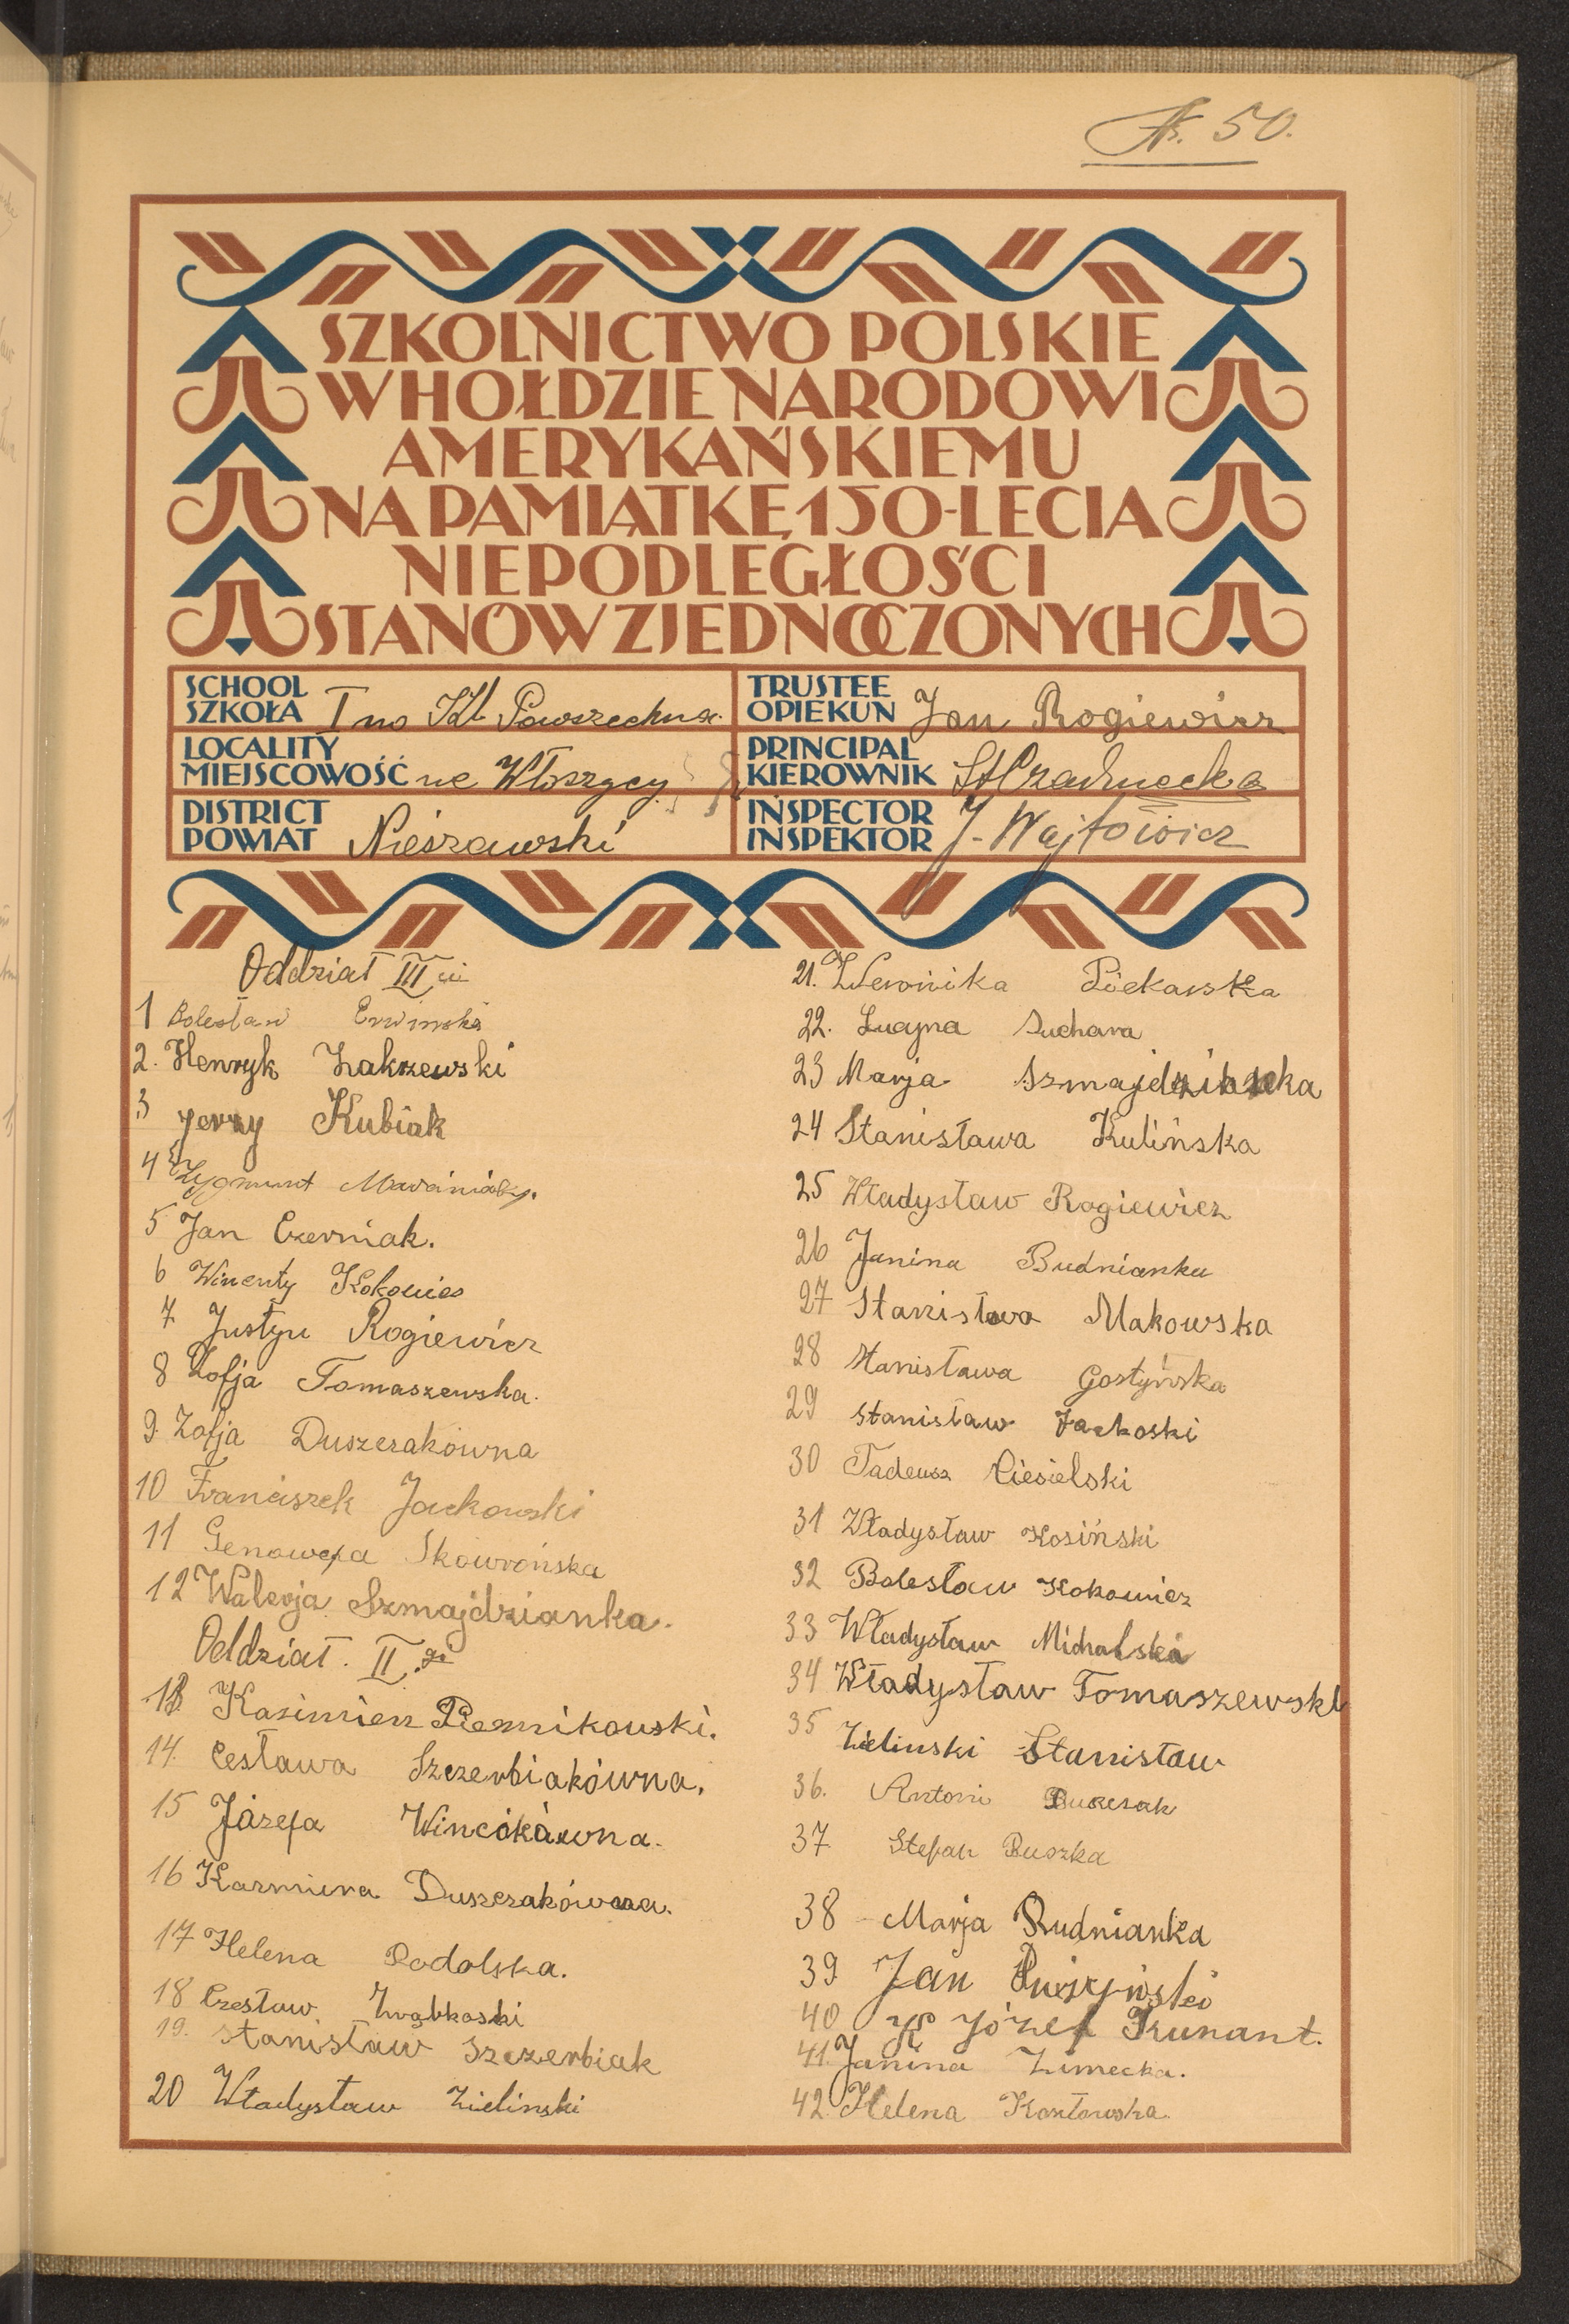 Nr. 50.
SZKOLNICTWO POLSKIE
W HOŁDZIE NARODOWI
AMERYKAŃSKIEMU
NA PAMIĄTKĘ 150-LECIA
NIEPODLEGŁOŚCI
STANÓW ZJEDNOCZONYCH
SCHOOL
SZKOŁA I no Kl. Powszechna
TRUSTEE
OPIEKUN Jan Rogiewicz
LOCALITY
MIEJSCOWOŚĆ we Włoszycy
PRINCIPAL
KIEROWNIK
DISTRICT
POWIAT Nieszawski
INSPECTOR
INSPEKTOR J. Wojtowicz
Oddział III ci
1 Bolesław Erwiński
2. Henryk Zakrzewski
3 Jerzy Kubiak
4 Zygmunt
5 Jan Czerniak.
6 Wincenty Kokowicz
7 Justyn Rogiewicz
8 Zofja Tomaszewska.
9. Zofja Duszczakówna
10 Franciszek Jackowski
11 Genowefa Skowrońska
12 Walerja Szmajdzianka.
Oddział. II.gi
13 Kazimierz Piernikowski.
14. Cesława Szczerbiakówna.
15 Józefa
16 Kazmiera Duszczakówna.
17 Helena Podolska.
18 Czesław Zrąbkoski
19. Stanisław Szczerbiak
20 Władysław Zielinski
21. Weronika Piekarska
22. Lucyna Suchara
23 Marja
24 Stanisława Kulińska
25 Władysław Rogiewicz
26 Janina Budnianka
27 Stanisława Makowska
28 Stanisława Gostyńska
29 Stanisław Jackoski
30 Tadeusz Ciesielski
31 Władysław Kosiński
32 Bolesław Kokowicz
33 Władysław Michalski
34 Władysław Tomaszewski
35 Zielinski Stanisław
36. Antoni
37 Stefan Puszka
38 Marja Rudnianka
39 Jan
40 Józef Kunant.
41. Janina Zimecka.
42. Helena Kozłowska.